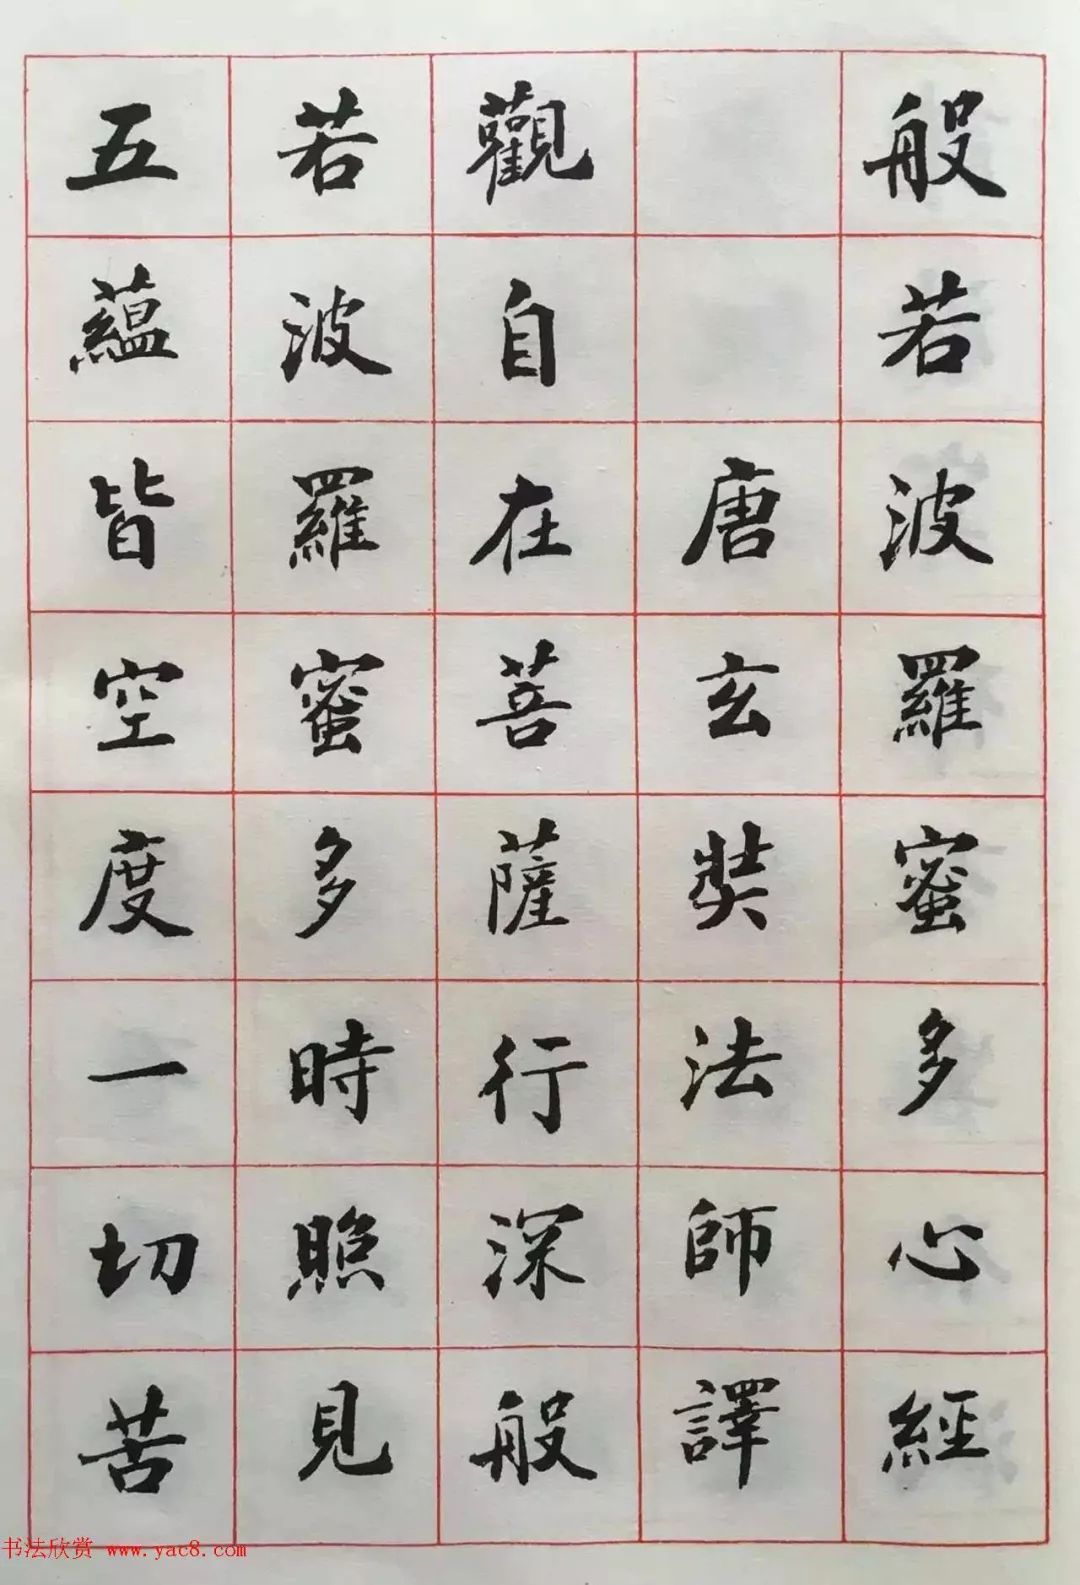 般若波羅蜜多心經
唐玄奘法師譯
觀自在菩薩行深般
若波羅蜜多時照見
五蘊皆空度一切苦
书法欣赏 www.yac8.com